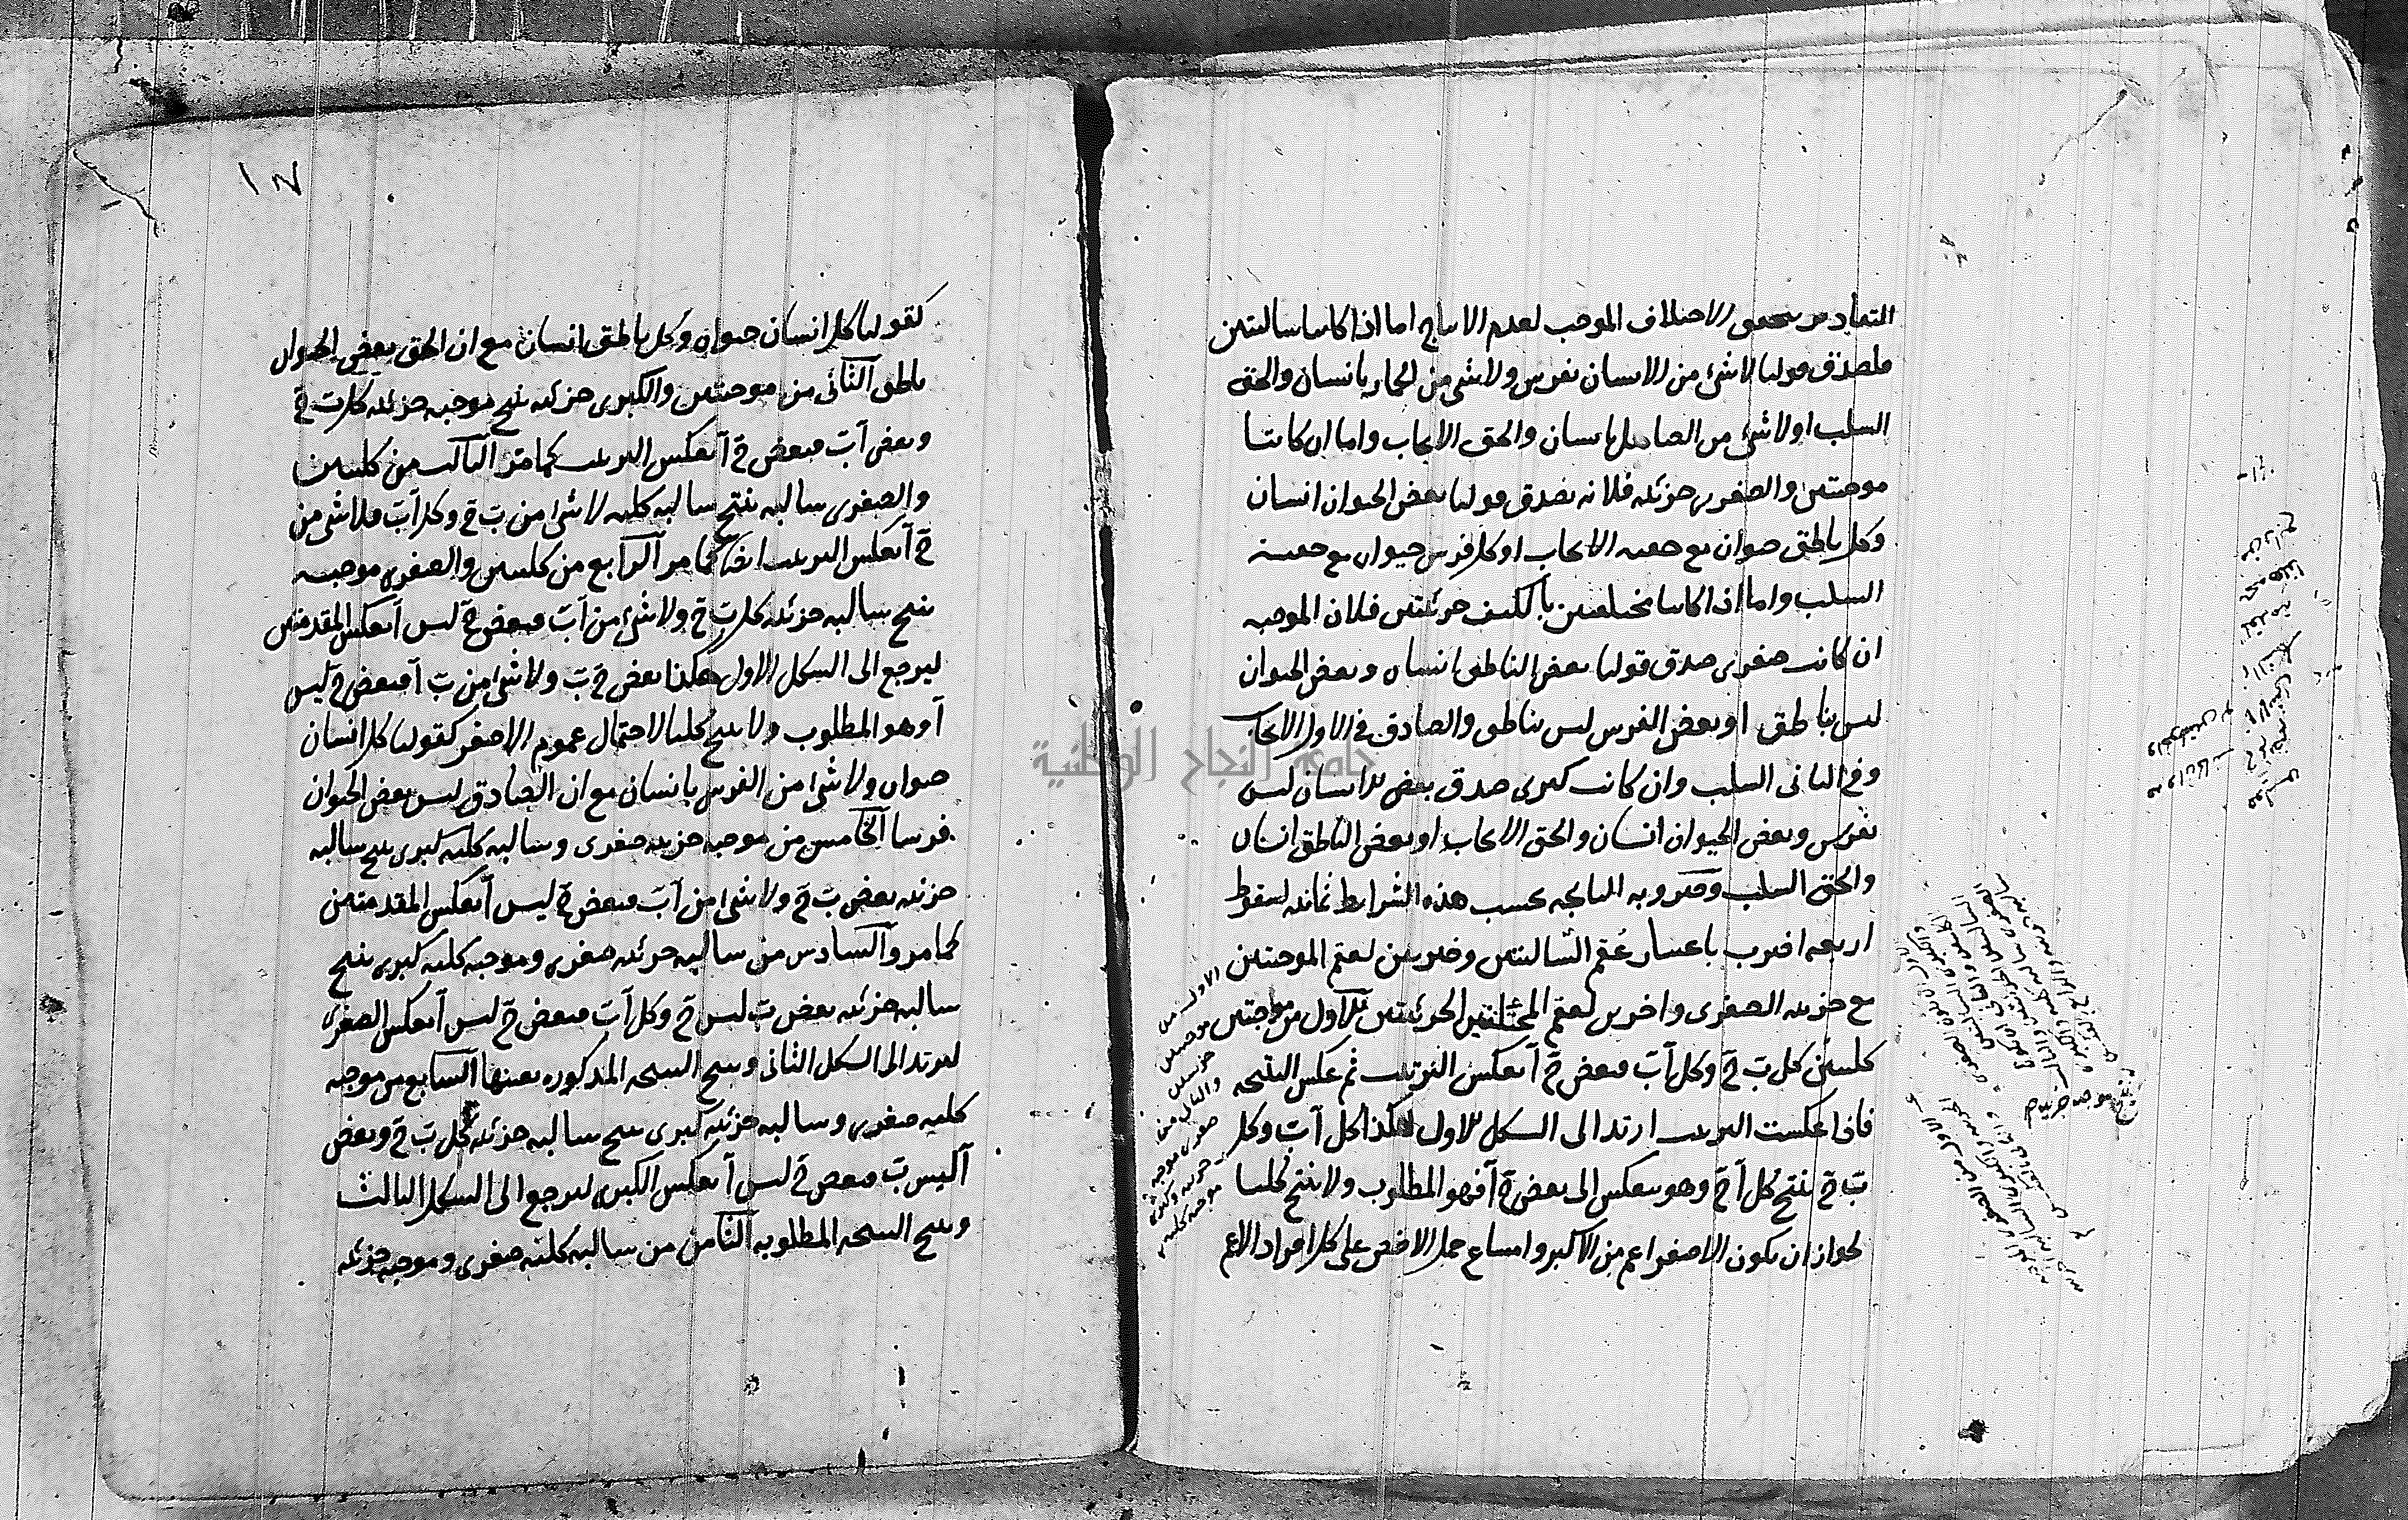 التقادير يتحقق الاختلاف الموجب لعدم الانتاج اما اذا كانتا سالبتين
فلصدق قولنا لا شئ من الانسان بفرس ولا شئ من الحمار بانسان والحق
السلب او لا شئ من الصاهل بانسان والحق الايجاب واما ان كانتا
موجبتين والصغرى جزئية فلانه يصدق قولنا بعض الحيوان انسان
وكل ناطق حيوان مع حقية الايجاب او كل فرس حيوان مع حقية
السلب واما اذا كانتا مختلفتين بالكيف جزئيتين فلان الموجبة
ان كانت صغرى صدق قولنا بعض الناطق انسان وبعض الحيوان
ليس بناطق او بعض الفرس ليس بناطق والصادق في الاول الايجاب
وفي الثاني السلب وان كانت كبرى صدق بعض الانسان ليس
بفرس وبعض الحيوان انسان والحق الايجاب او بعض الناطق انسان
والحق السلب وضروبه الناتجة بحسب هذه الشرايط ثمانية لسقوط
اربعة اضرب باعتبار عُقم السالبتين وضربين لعقم الموجبتين
مع جزئية الصغرى واخرين لعقم المختلفتين الجزئيتين الاول من موجبتين
كليتين كل ب ج وكل آ ب فبعض ج آ بعكس الترتيب ثم عكس النتيجة
فاذا عكست الترتيب ارتد الى الشكل الاول هكذا كل آ ب وكل
ب ج ينتج كل آ ج وهو ينعكس الى بعض ج آ فهو المطلوب ولا ينتج كليا
لجواز ان يكون الاصغر اعم من الاكبر وامتناع حمل الاخص على كل افراد الاعم
الاول من
موجبتين
جزئيتين
والثاني من
صغرى موجبة
جزئية وكبرى
موجبة كلية
جامعة النجاح الوطنية
١٧
كقولنا كل انسان حيوان وكل ناطق انسان مع ان الحق بعض الحيوان
ناطق الثاني من موجبتين والكبرى جزئية ينتج موجبة جزئية كل ب ج
وبعض آ ب فبعض ج آ بعكس الترتيب كما مر الثالث من كليتين
والصغرى سالبة ينتج سالبة كلية لا شئ من ب ج وكل آ ب فلا شئ من
ج آ بعكس الترتيب ايضا كما مر الرابع من كليتين والصغرى موجبة
ينتج سالبة جزئية كل ب ج ولا شئ من آ ب فبعض ج ليس آ بعكس المقدمتين
ليرجع الى الشكل الاول هكذا بعض ج ب ولا شئ من ب آ فبعض ج ليس
آ وهو المطلوب ولا ينتج كليا لاحتمال عموم الاصغر كقولنا كل انسان
حيوان ولا شئ من الفرس بانسان مع ان الصادق ليس بعض الحيوان
فرسا الخامس من موجبة جزئية صغرى وسالبة كلية كبرى ينتج سالبة
جزئية بعض ب ج ولا شئ من آ ب فبعض ج ليس آ بعكس المقدمتين
كما مر والسادس من سالبة جزئية صغرى وموجبة كلية كبرى ينتج
سالبة جزئية بعض ب ليس ج وكل آ ب فبعض ج ليس آ بعكس الصغرى
ليرتد الى الشكل الثاني وينتج النتيجة المذكورة بعينها السابع من موجبة
كلية صغرى وسالبة جزئية كبرى ينتج سالبة جزئية كل ب ج وبعض
آ ليس ب فبعض ج ليس آ بعكس الكبرى ليرجع الى الشكل الثالث
وينتج النتيجة المطلوبة الثامن من سالبة كلية صغرى وموجبة جزئية